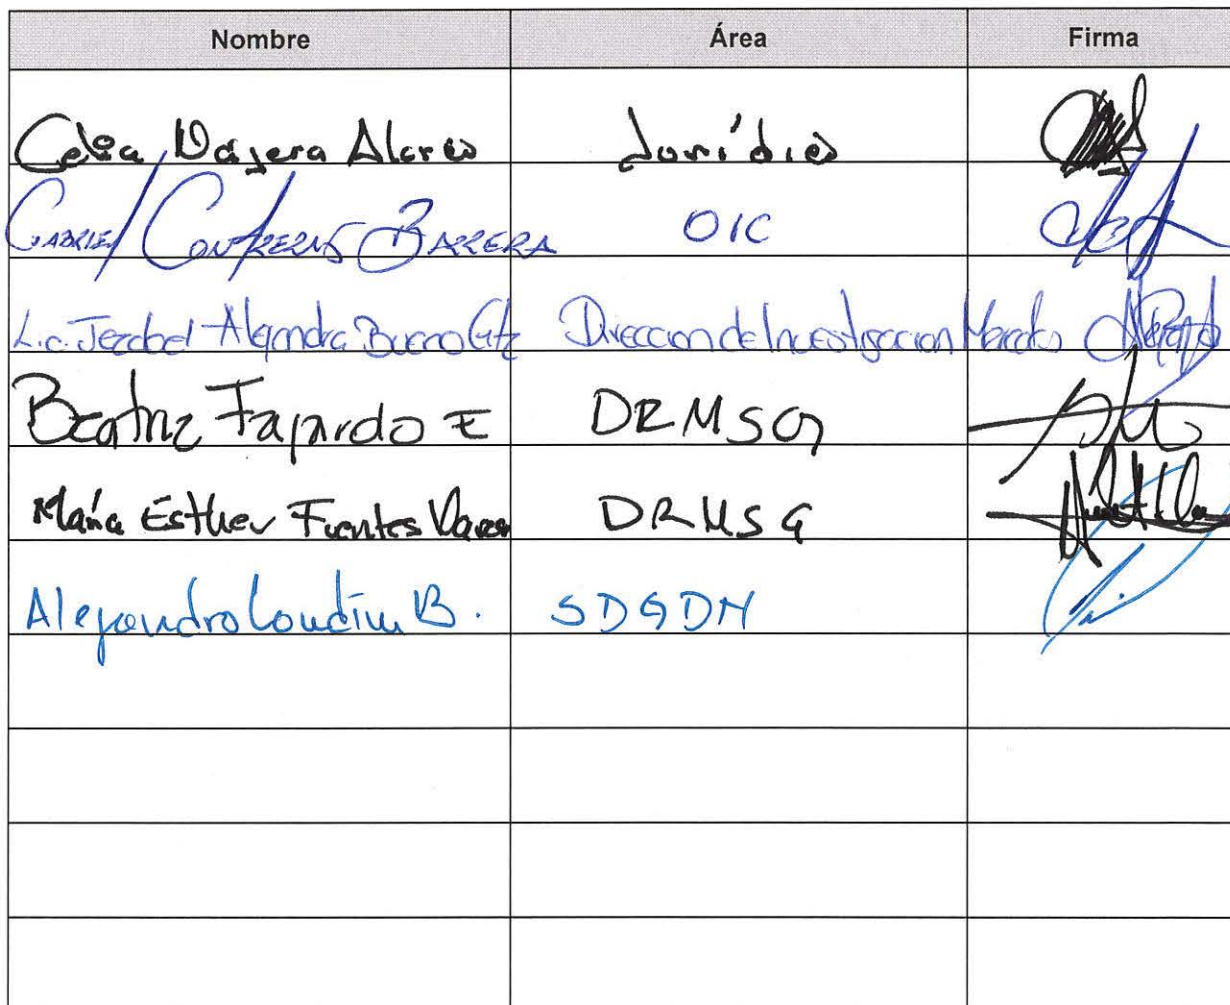 Nombre Área Firma
Celia Nájera
Gabriel Contreras Barrera OIC
Lic. Jezabel Alejandra Bueno Gtz Direccion de Investigacion Mercado
Beatriz Fajardo E DRMSG
María Esther Fuentes DRMSG
Alejandro B. SDGDM